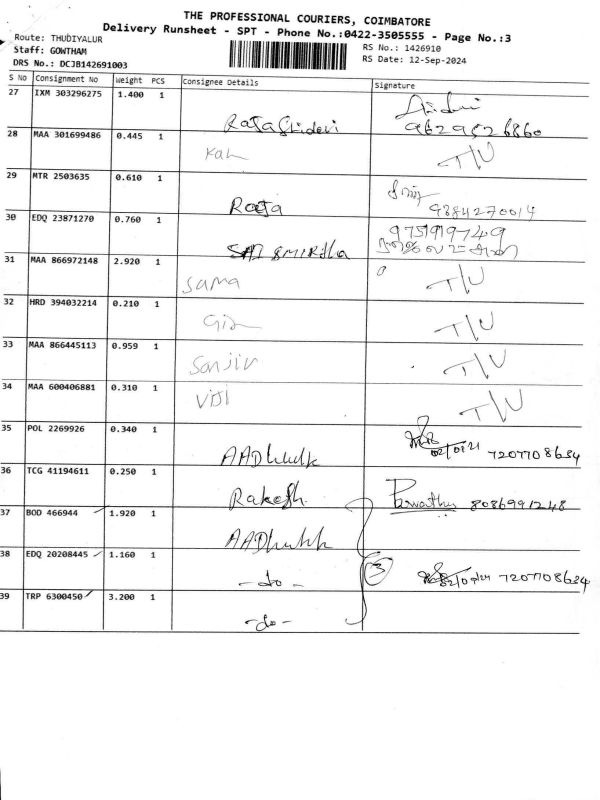 THE PROFESSIONAL COURIERS, COIMBATORE
Delivery Runsheet - SPT - Phone No.:0422-3505555 - Page No.:3
Route: THUDIYALUR
Staff: GOWTHAM
DRS No.: DCJB142691003
RS No.: 1426910
RS Date: 12-Sep-2024
S No Consignment No Weight PCS Consignee Details Signature
27 IXM 303296275 1.400 1
9629526860
28 MAA 301699486 0.445 1 T/U
29 MTR 2503635 0.610 1 Raja 9384270014
30 EDQ 23871270 0.760 1 9751919749
31 MAA 866972148 2.920 1 Suma T/U
32 HRD 394032214 0.210 1 T/U
33 MAA 866445113 0.959 1 Sanjiv T/U
34 MAA 600406881 0.310 1 Viji T/U
35 POL 2269926 0.340 1 7207708634
36 TCG 41194611 0.250 1 Rakesh 8086991248
37 BOD 466944 1.920 1
38 EDQ 20208445 1.160 1 -do- 3 7207708634
39 TRP 6300450 3.200 1 -do-